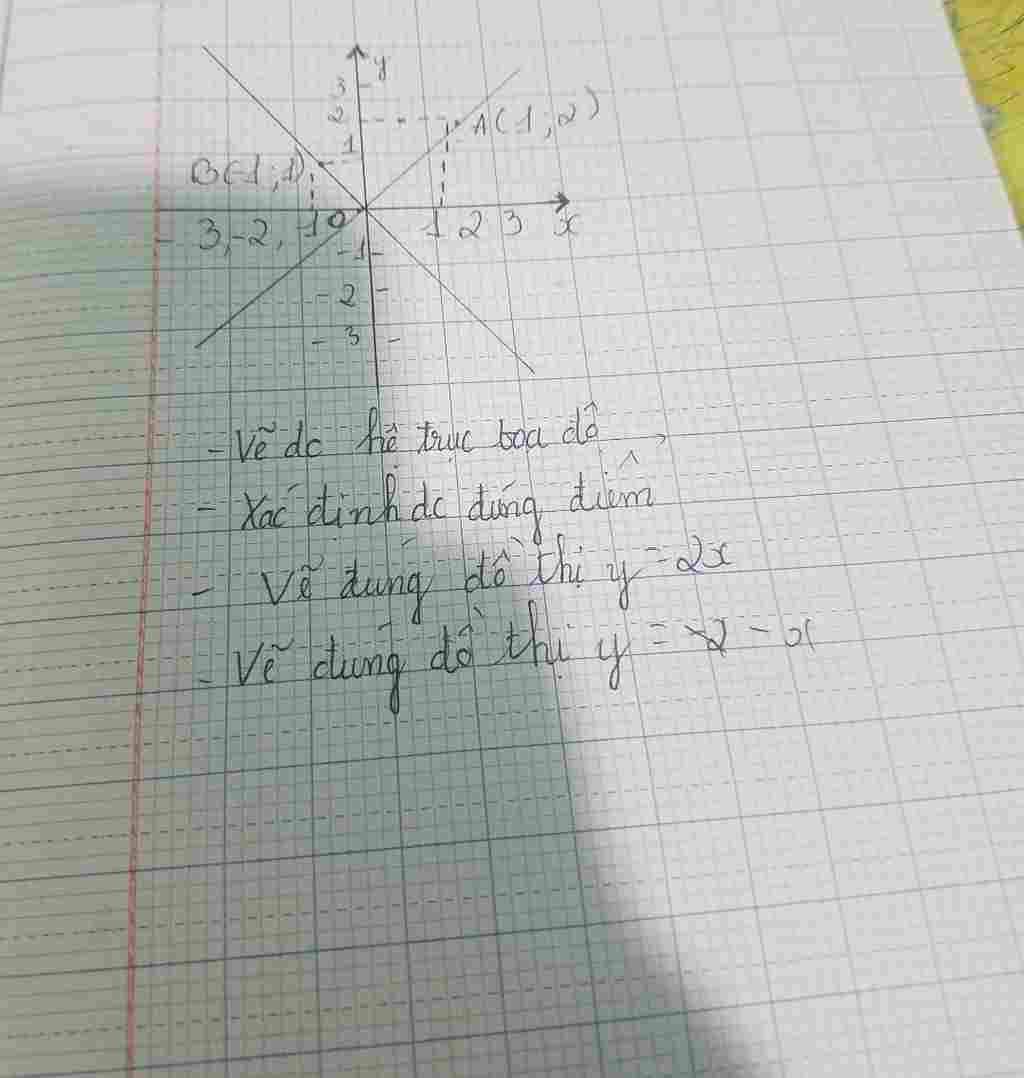 y
3
2
A(1;2)
1
B(-1;1)
- 3, -2, -1 0 1 2 3 x
-1
- 2 -
- 3 -
- Vẽ dc hệ trục toa dô
- Xác định dc dúng điểm
- Vẽ đúng đồ thị y = 2x
- Vẽ đúng đồ thị y = -2 - x